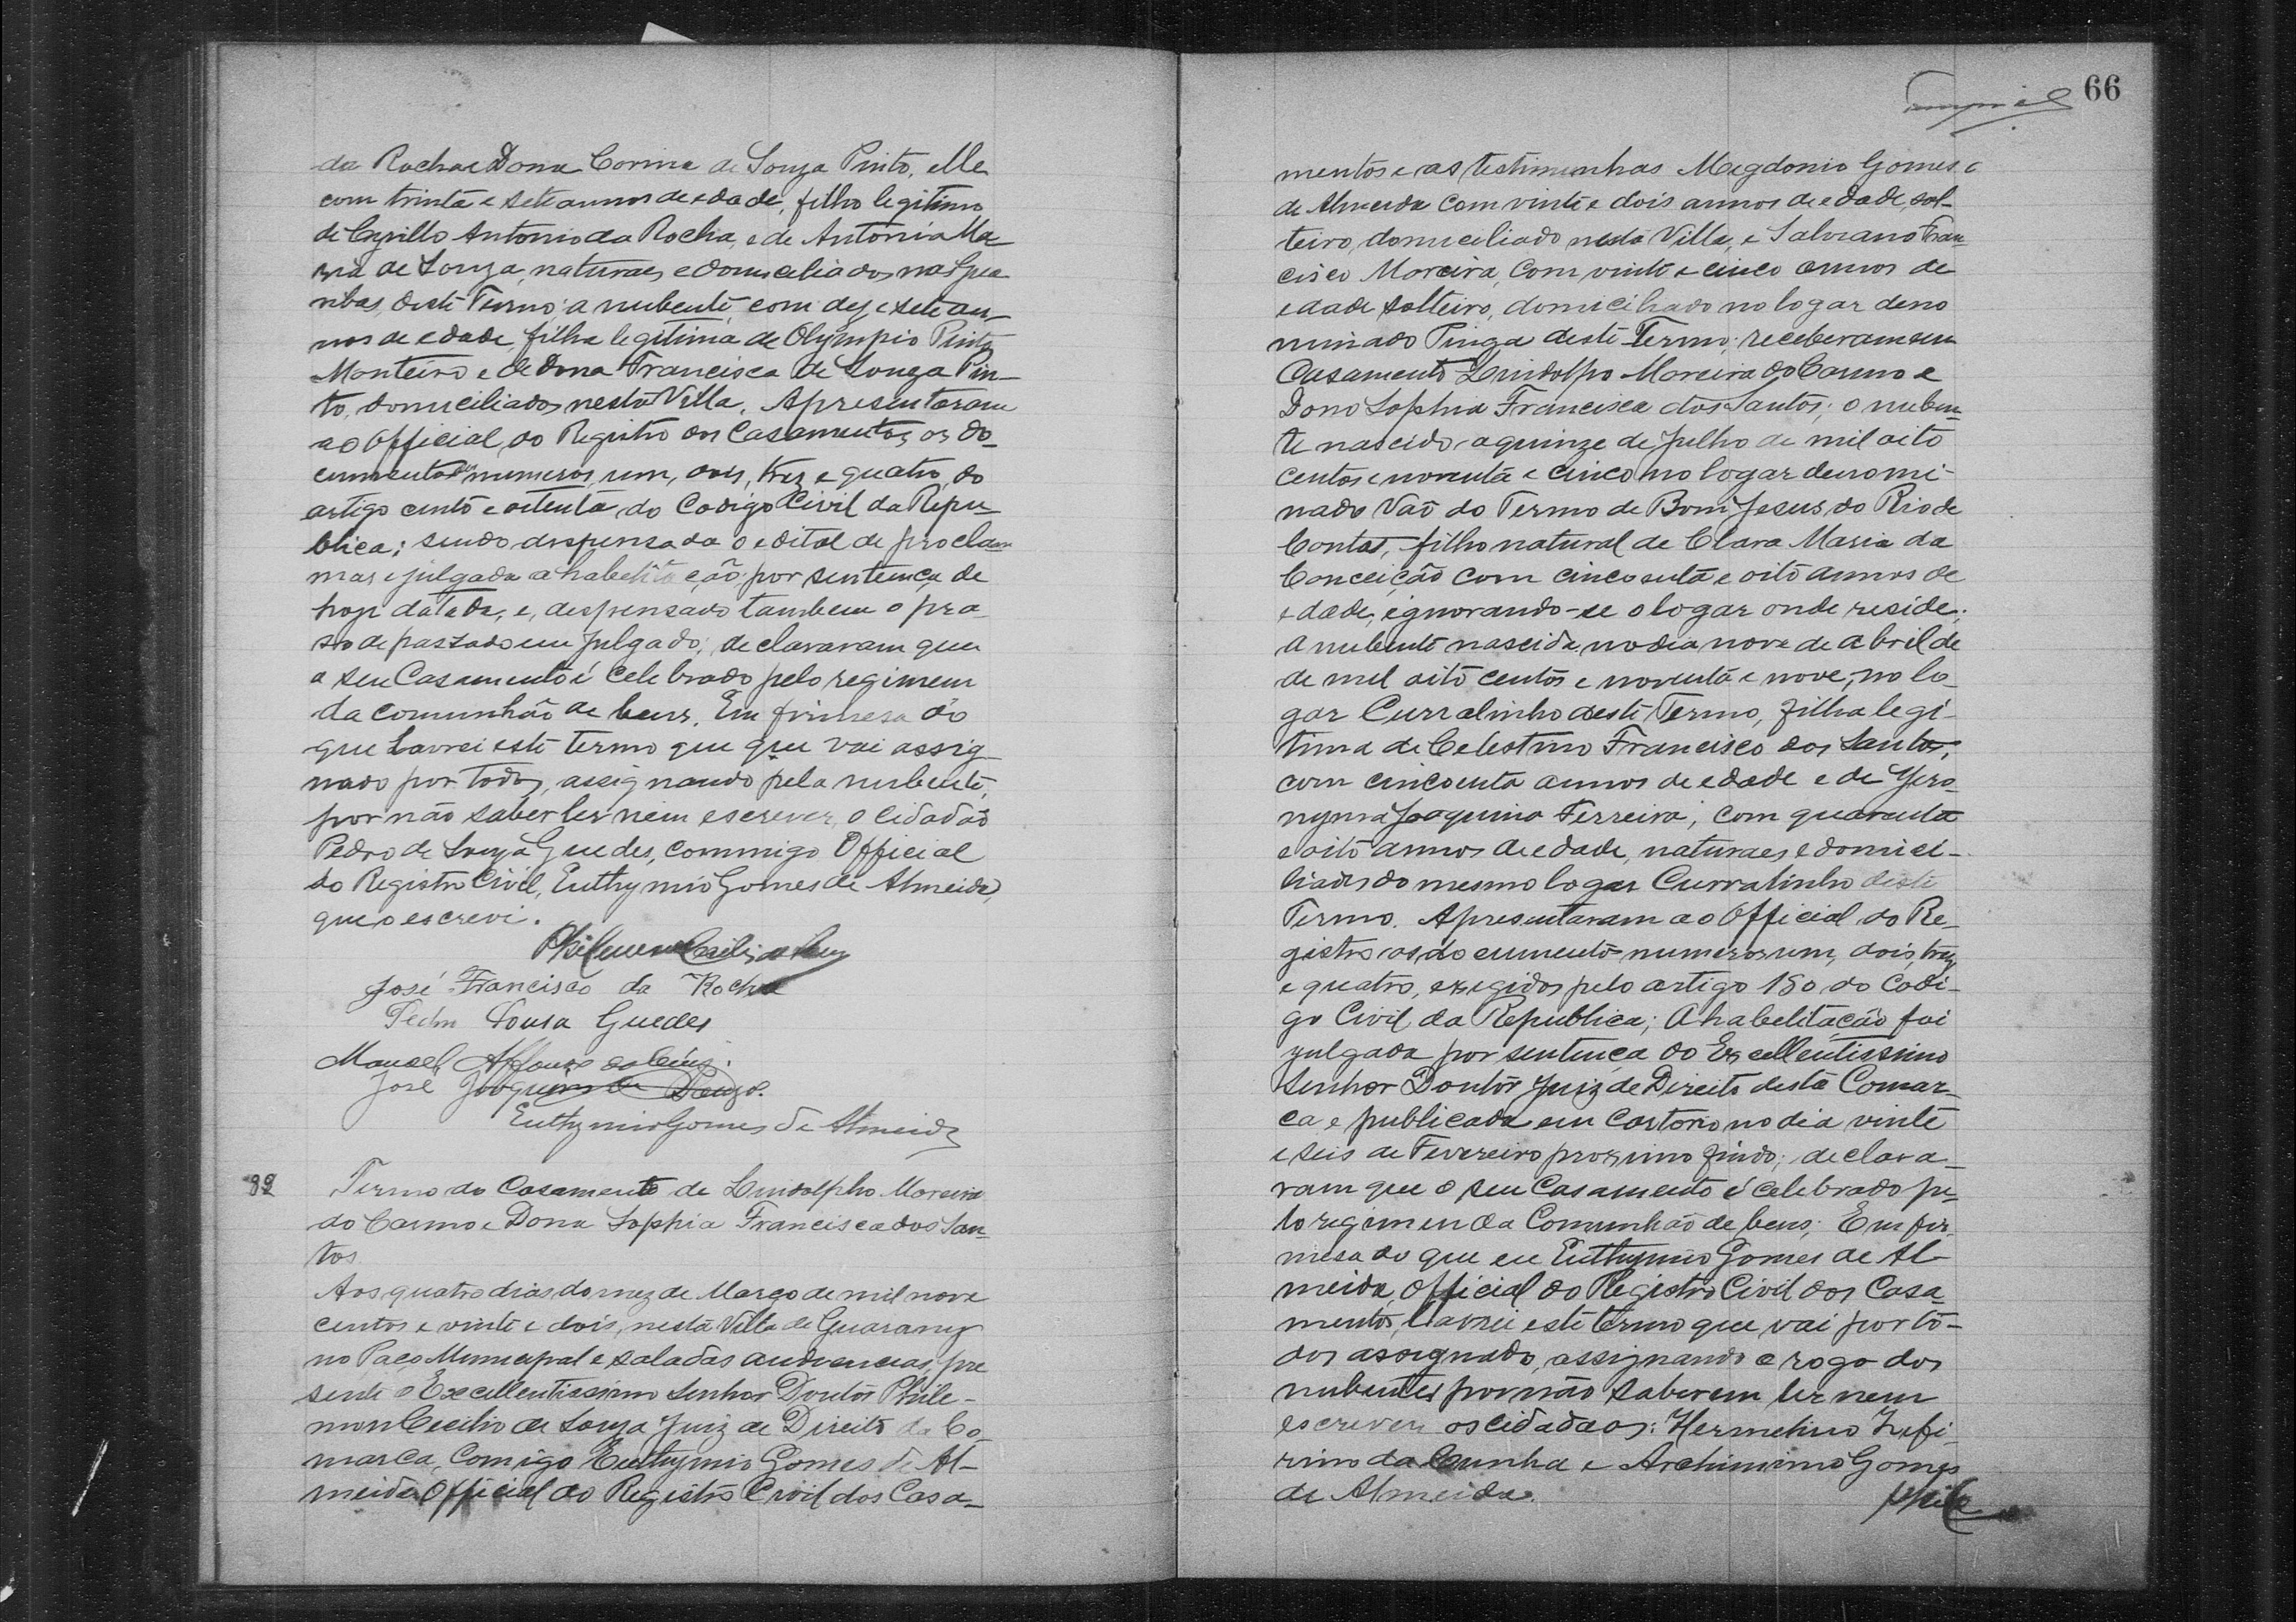 da Rocha e Dona Corina de Souza Pinto, elle
com trinta e sete annos de edade, filho legitimo
de Cyrillo Antonio da Rocha, e de Antonia Ma-
ria de Souza, naturaes e domiciliados nas
deste Termo; a nubente, com dez e sete an-
nos de edade, filha legitima de Olympio Pinto
Monteiro e de Dona Francisca de Souza Pin-
to, domiciliados nesta Villa. Apresentaram
ao Official do Registro dos Casamentos os do-
cumentos numeros, um, dois, trez e quatro, do
artigo cento e oitenta do Codigo Civil da Repu-
blica; sendo dispensada o edital de procla-
mas e julgada a habelitação, por sentença de
hoje datada, e, despensado tambem o pra-
so de passado em julgado; declararam que
o seu Casamento é celebrado pelo regimem
da comunhão de bens. Em firmesa do
que lavrei este termo que que vai assig-
nado por todos, assignando pela nubente,
por não saber ler nem escrever, o cidadão
Pedro de Souza Guedes, commigo Official
do Registro Civil, Euthymio Gomes de Almeida,
que o escrevi.
José Francisco da Rocha
Pedro Sousa Guedes
Manoel Affonso
José Joaquim de Souza.
Euthymio Gomes de Almeida
Termo do Casamento de Lindolpho Moreira
do Carmo e Dona Sophia Francisca dos San-
tos
Aos quatro dias do mez de Março de mil nove
centos e vinte e dois, nesta Villa de Guarany
no Paço Municipal e sala das audiencias, pre
sente o Excellentissimo Senhor Doutôr Phile-
mon Cecilio de Souza Juiz de Direito da Co-
marca, Comigo Euthymio Gomes de Al-
meida Official do Registro Civil dos Casa-
66
mentos e as testimunhas Magdonio Gomes
de Almeida com vinte e dois annos de edade, sol-
teiro, domiciliado nesta Villa, e Salviano Fran-
cisco Moreira, com vinte e cinco annos de
edade solteiro, domiciliado no logar deno
minado Pinga deste Termo; receberam em
Casamento Lindolpho Moreira do Carmo e
Dona Sophia Francisca dos Santos; o nuben-
te nascido a quinze de Julho de mil oito
centos e noventa e cinco no logar denomi-
nado Vaõ do Termo de Bom Jesus do Rio de
Contas, filho natural de Clara Maria da
Conceição com cincoenta e oito annos de
edade, ignorando-se o logar onde reside;
a nubente nascida no dia nove de abril de
de mil oito centos e noventa e nove, no lo-
gar Curralinho deste Termo, filha legi-
tima de Celestino Francisco dos Santos,
com cincoenta annos de edade e de Jero-
nyma Joaquina Ferreira, com quarenta
e oito annos de edade, naturaes e domici-
liados do mesmo logar Curralinho deste
Termo. Apresentaram ao Official do Re-
gistro os documento numeros um, dois, trez
e quatro, exegidos pelo artigo 180 do Codi-
go Civil da Republica; A habelitação foi
julgada por sentença do Excellentissimo
Senhor Doutôr Juiz de Direito desta Comar-
ca e publicada em Cartorio no dia vinte
e seis de Fevereiro proximo findo; declara-
ram que o seu Casamento é celebrado pe-
lo regimen da Comunhão de bens; Em fir-
mesa do que eu Euthymio Gomes de Al-
meida, Official do Registro Civil dos Casa-
mentos, lavrei este termo que vai por to-
dos assignado, assignando a rogo dos
nubentes por não saberem ler nem
escrever os cidadaos: Hermelino Zefi-
rino da Cunha e Archimimo Gomes
de Almeida.